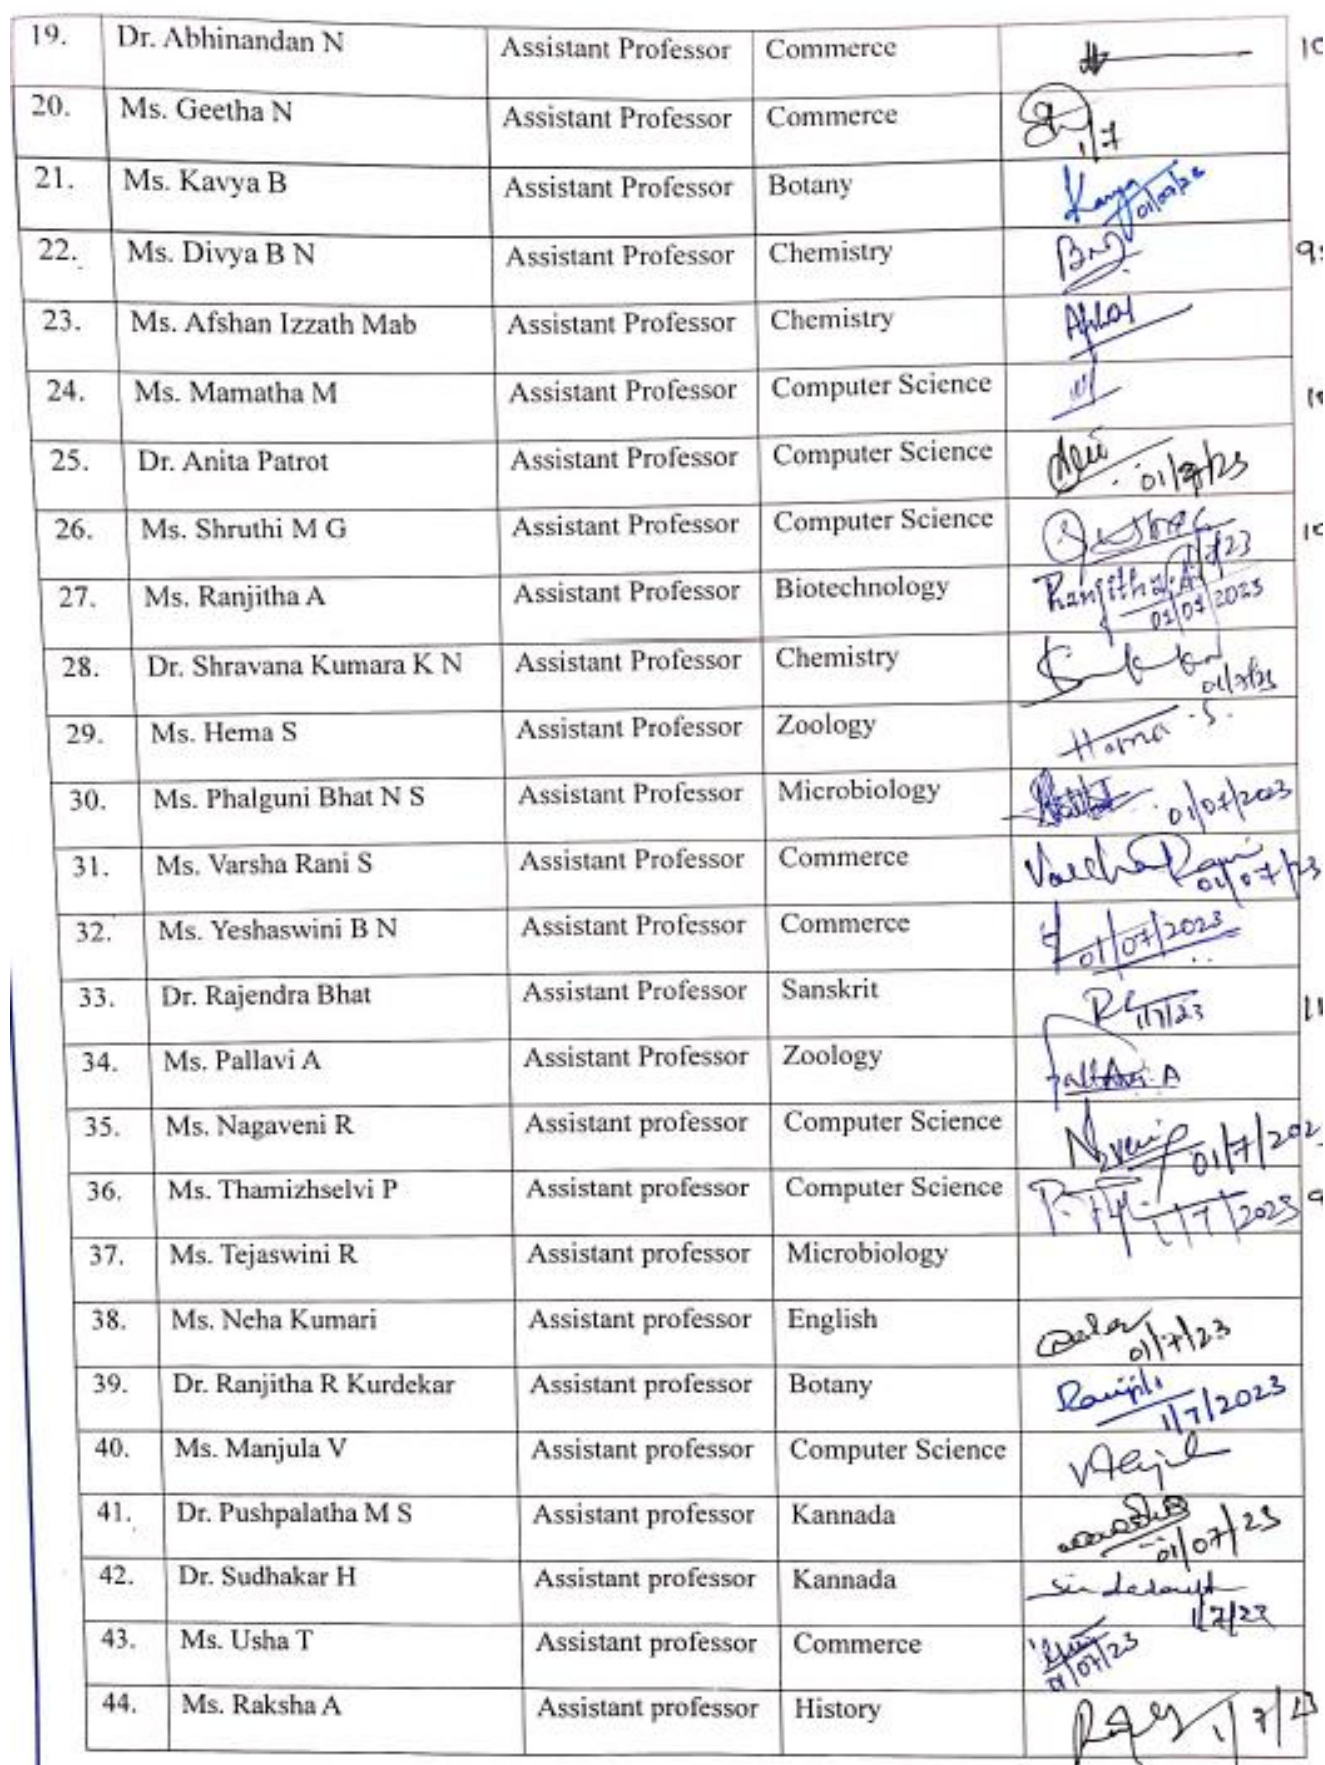 19. Dr. Abhinandan N Assistant Professor Commerce 10
20. Ms. Geetha N Assistant Professor Commerce 1/7
21. Ms. Kavya B Assistant Professor Botany Kavya
22. Ms. Divya B N Assistant Professor Chemistry
23. Ms. Afshan Izzath Mab Assistant Professor Chemistry
24. Ms. Mamatha M Assistant Professor Computer Science
25. Dr. Anita Patrot Assistant Professor Computer Science
26. Ms. Shruthi M G Assistant Professor Computer Science 1/7/23 10
27. Ms. Ranjitha A Assistant Professor Biotechnology Ranjitha.A 01/07/2023
28. Dr. Shravana Kumara K N Assistant Professor Chemistry 01/7/23
29. Ms. Hema S Assistant Professor Zoology Hema .S.
30. Ms. Phalguni Bhat N S Assistant Professor Microbiology 01/07/2023
31. Ms. Varsha Rani S Assistant Professor Commerce Varsha Rani 01/07/23
32. Ms. Yeshaswini B N Assistant Professor Commerce 01/07/2023
33. Dr. Rajendra Bhat Assistant Professor Sanskrit 1/7/23 11
34. Ms. Pallavi A Assistant Professor Zoology Pallavi.A
35. Ms. Nagaveni R Assistant professor Computer Science 01/7/202
36. Ms. Thamizhselvi P Assistant professor Computer Science 1/7/2023
37. Ms. Tejaswini R Assistant professor Microbiology
38. Ms. Neha Kumari Assistant professor English 01/7/23
39. Dr. Ranjitha R Kurdekar Assistant professor Botany 1/7/2023
40. Ms. Manjula V Assistant professor Computer Science
41. Dr. Pushpalatha M S Assistant professor Kannada 01/07/23
42. Dr. Sudhakar H Assistant professor Kannada 1/7/23
43. Ms. Usha T Assistant professor Commerce 01/07/23
44. Ms. Raksha A Assistant professor History 1/7/23